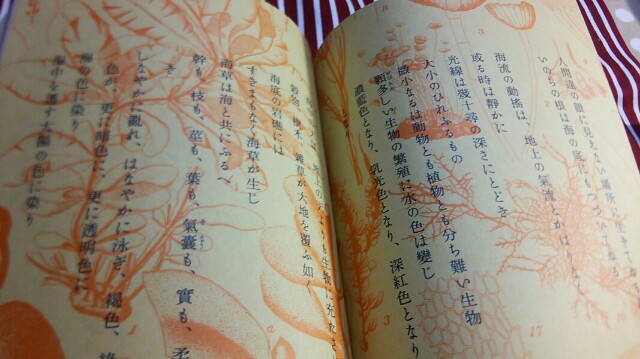 人間達の眼に見えない場所に生きてゐる
いのちの根は海の底にもつづいてゐる
海流の動搖は、地上の氣流とかはりなく
或る時は靜かに
光線は幾十尋の深さにとどき
大小のひれふるもの
微小なるは動物とも植物とも分ち難い生物
夥多しい生物の繁殖に水の色は變じ
濃藍色となり、乳光色となり、深紅色となり
地上の
りも生物に充
海底の岩礁には
穀物、樹木、雜草が大地を覆ふ如く
すきまもなく海草が生じ
海草は海と共にふるへ
幹も、枝も、莖も、葉も、氣囊も、實も、柔
き
しなやかに亂れ、はなやかに泳ぎ、褐色、綠
色、更に暗色に、更に透明色に、
海の色に染り
海中を透す太陽の色に染り
3
8
a
1
3
16
17